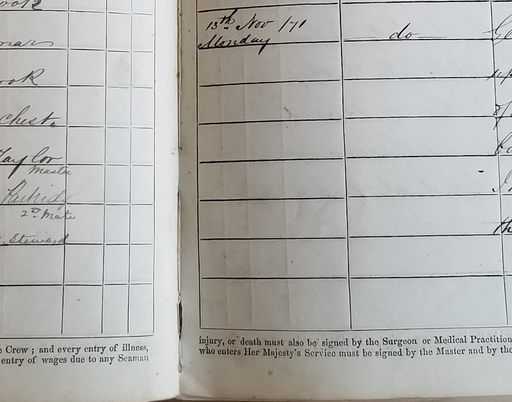 ook
chest.
Taylor
Master
2d. Mate
Steward
e Crew; and every entry of illness,
entry of wages due to any Seaman
13th Nov /71
Monday
do
injury, or death must also be signed by the Surgeon or Medical Practition
who enters Her Majesty's Service must be signed by the Master and by the